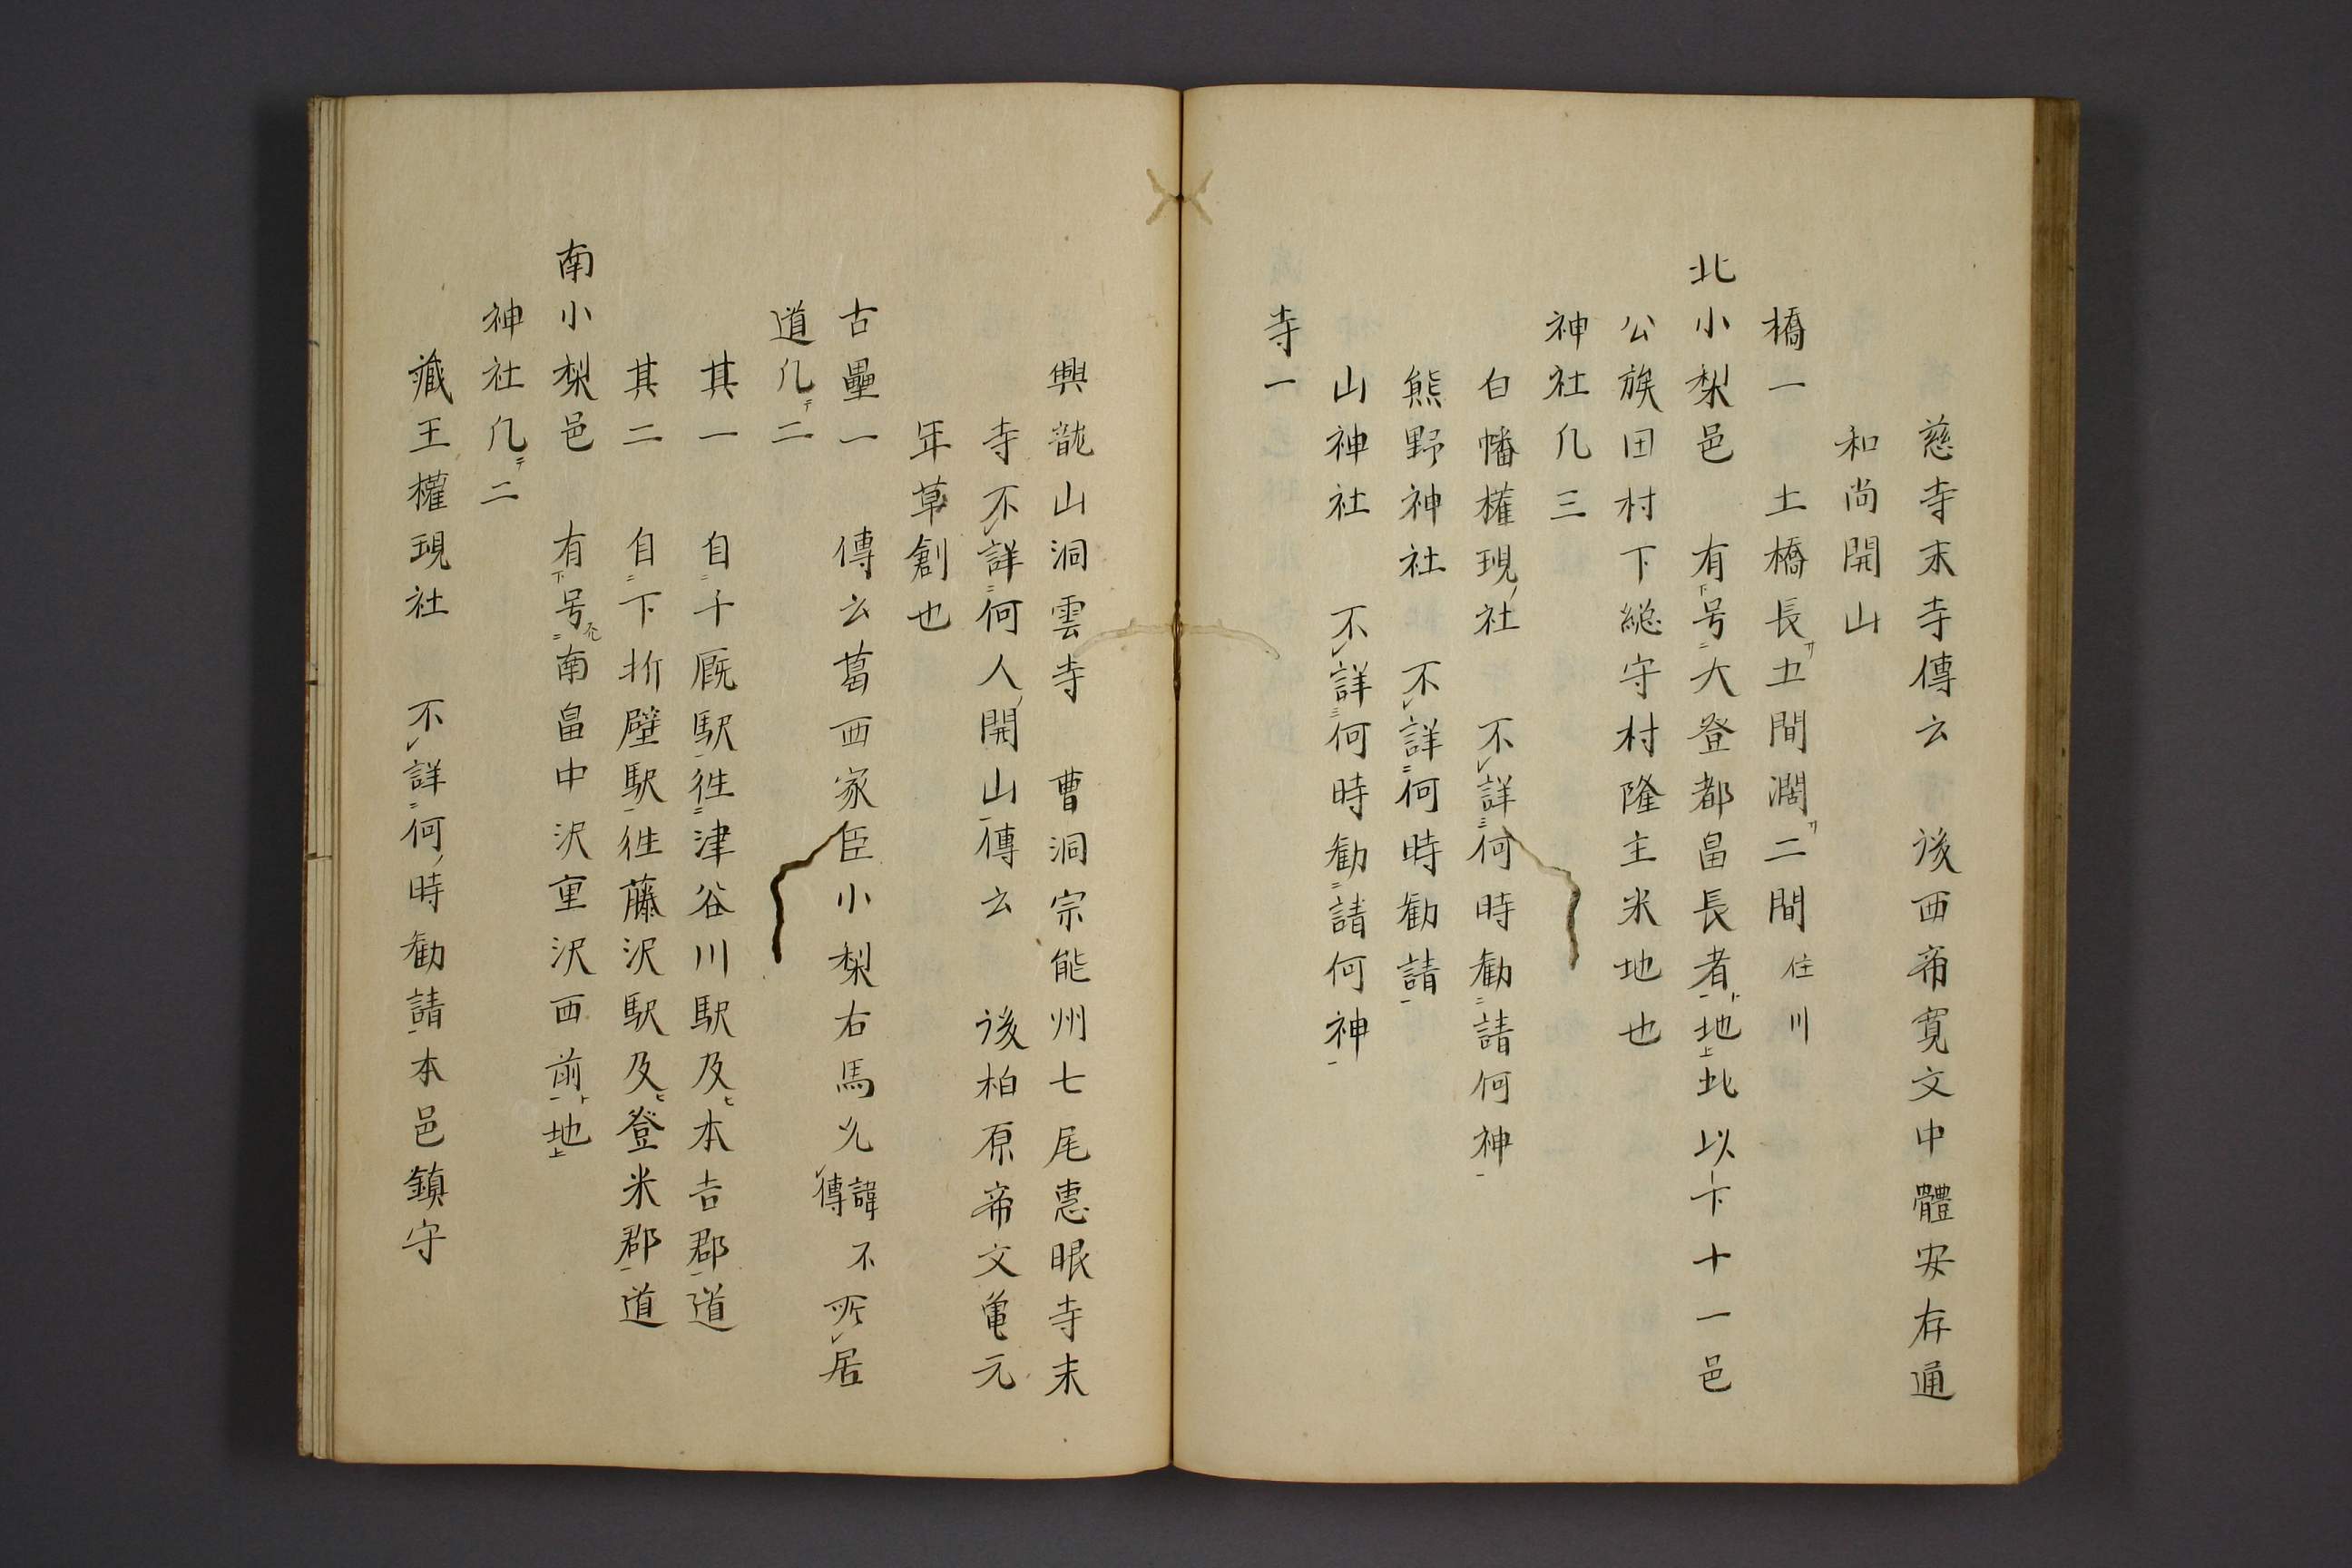 慈寺末寺傳云　後西帝寛文中體安存通
和尚開山
橋一　土橋長サ五間濶サ二間　住川
北小梨邑　有下号二大登都畠長者一ト地上此以下十一邑
公族田村下総守村隆主米地也
神社凡三
白幡權現ノ社　不レ詳三何時勧二請何神一
熊野神社　不レ詳二何時勧請一
山神社　不レ詳三何時勧二請何神一
寺一
興龍山洞雲寺　曹洞宗能州七尾恵眼寺末
寺不レ詳二何人ノ開山一傳云　後柏原帝文亀元
年草創也
古壘一　傳云葛西家臣小梨右馬允諱不レ傳所レ居
道凡テ二
其一　自二千厩駅一徃二津谷川駅及ヒ本吉郡一道
其二　自二下折壁駅一徃藤沢駅及ヒ登米郡一道
南小梨邑　有下号二南畠中沢重沢西前一ト地上
神社凡テ二
藏王權現社　不レ詳二何ノ時勧請一本邑鎮守